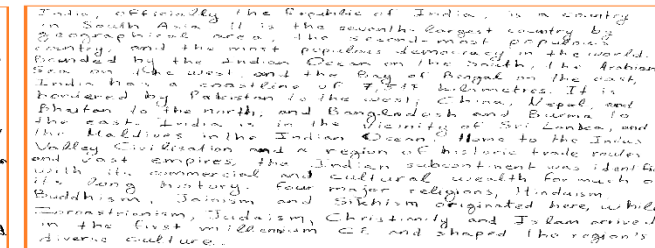 India, officially the Republic of India, is a country
in South Asia. It is the seventh-largest country by
geographical area, the second-most populous
country, and the most populous democracy in the world.
Bounded by the Indian Ocean on the south, the Arabian
Sea on the west, and the Bay of Bengal on the east,
India has a coastline of 7,517 kilometres. It is
bordered by Pakistan to the west; China, Nepal, and
Bhutan to the north; and Bangladesh and Burma to
the east. India is in the vicinity of Sri Lanka, and
the Maldives in the Indian Ocean. Home to the Indus
Valley Civilisation and a region of historic trade routes
and vast empires, the Indian subcontinent was identified
with its commercial and cultural wealth for much of
its long history. Four major religions, Hinduism
Buddhism, Jainism and Sikhism originated here, while
Zoroastrianism, Judaism, Christianity and Islam arrived
in the first millennium CE and shaped the region's
diverse culture.